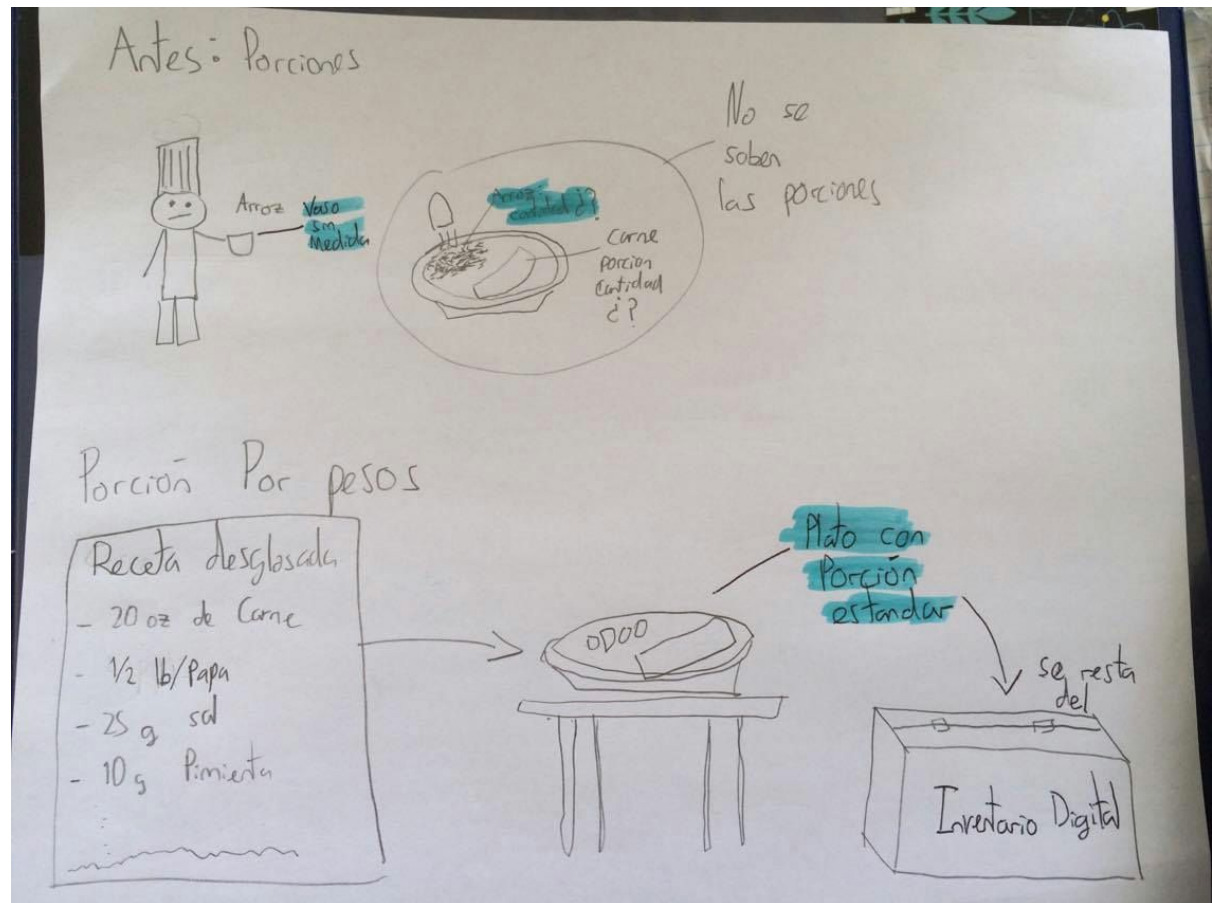 Antes: Porciones
Arroz
Vaso
sin
Medida
Arroz:
cantidad ¿?
Carne
porcion
Cantidad
¿?
No se
saben
las porciones
Porción Por pesos
Receta desglosada
- 20 oz de Carne
- 1/2 lb/Papa
- 25 g sal
- 10 g Pimienta
Plato con
Porción
estandar
se resta
del
Inventario Digital